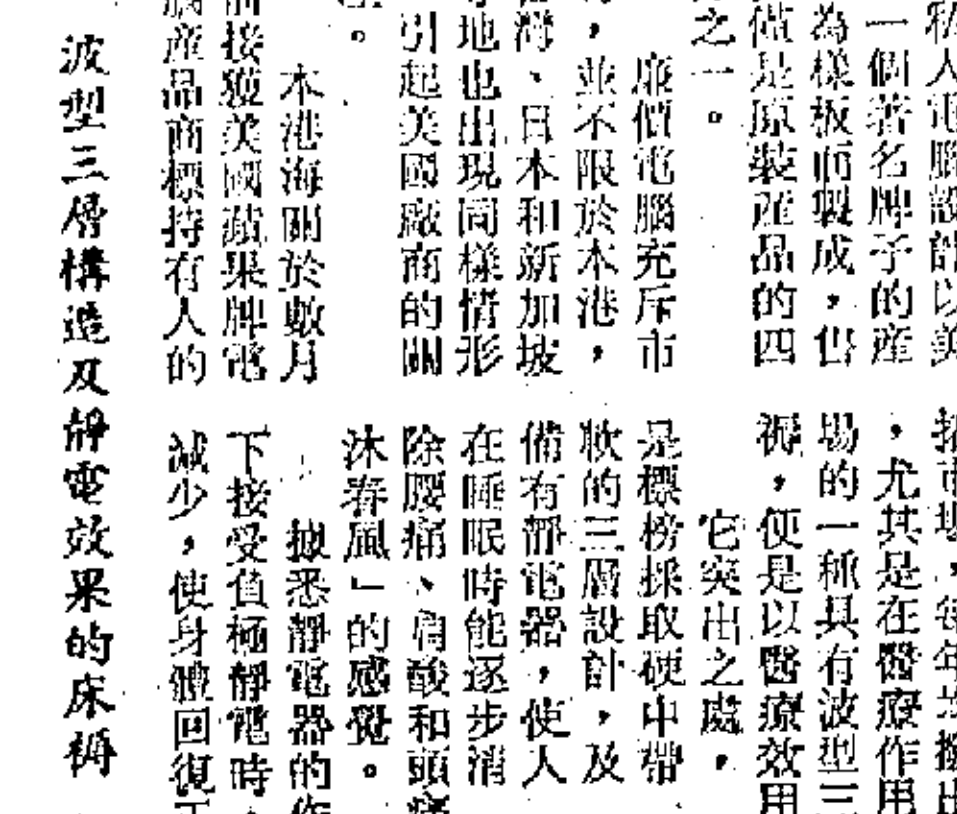 私人電腦設計以美
一個著名牌子的產
為樣板而製成，估
備是原裝產品的四
之一。
廉價電腦充斥市
，並不限於本港，
灣、日本和新加坡
地也出現同樣情形
引起美國廠商的關
。
本港海關於數月
前接獲美國蘋果牌電
腦產品商標持有人的
市場，每年均推出
，尤其是在醫療作用
場的一種具有波型三
褥，便是以醫療效用
它突出之處，
是標榜採取硬中帶
軟的三層設計，及
備有靜電器，使人
在睡眠時能逐步消
除腰痛、肩酸和頭痛
沐春風」的感覺。
據悉靜電器的作
下接受值極靜電時，
減少，使身體回復正
波型三層構造及靜電效果的床褥